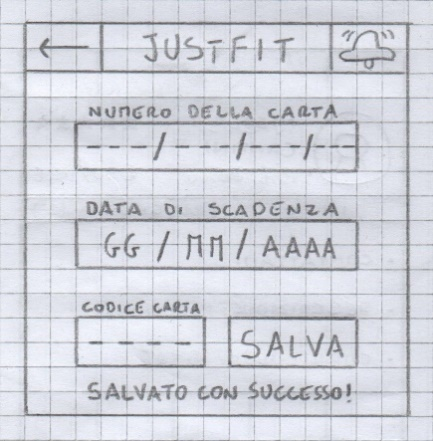 JUSTFIT
NUMERO DELLA CARTA
---/---/---/---
DATA DI SCADENZA
GG / MM / AAAA
CODICE CARTA
----
SALVA
SALVATO CON SUCCESSO!